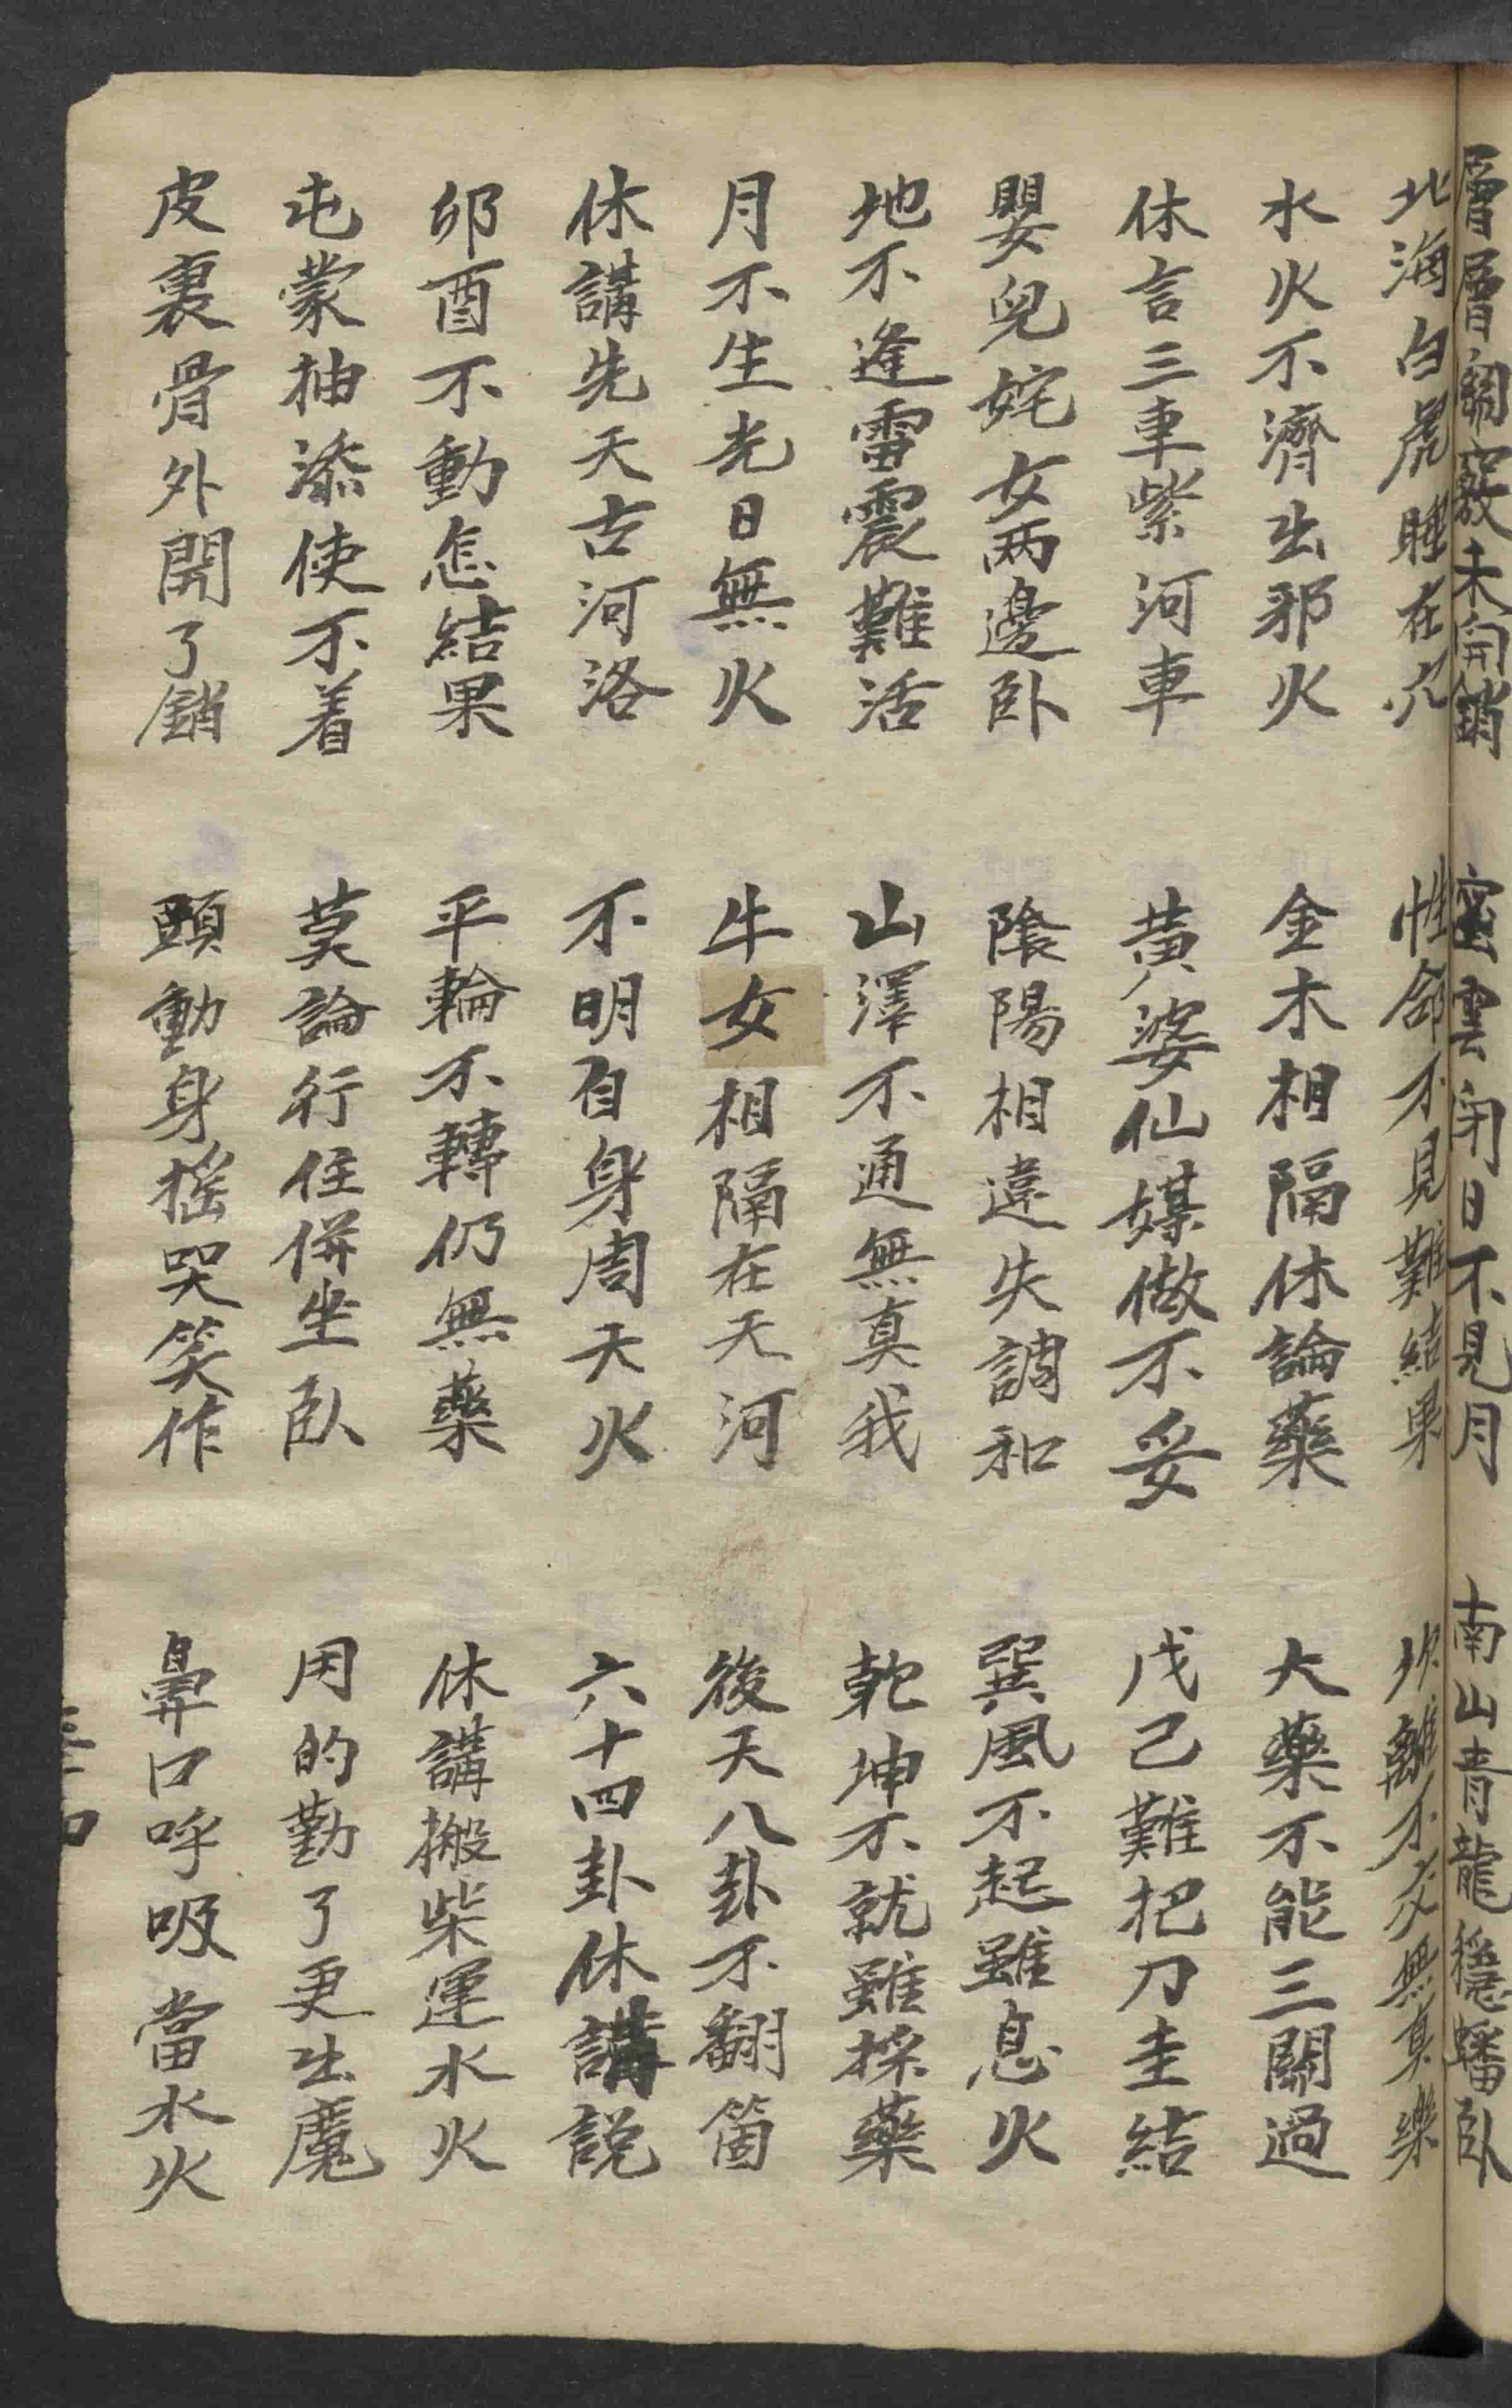 層層關竅未開鎖　密雲閉日不見月　南山青龍穩蟠臥
北海白虎睡在穴　性命不見難結果　坎離不交無真樂
水火不濟出邪火　金木相隔休論藥　大藥不能三關過
休言三車紫河車　黃婆仙媒做不妥　戊己難把刀圭結
嬰兒姹女兩邊卧　陰陽相違失調和　巽風不起雖息火
地不逢雷震難活　山澤不通無真我　乾坤不就雖採藥
月不生光日無火　牛女相隔在天河　後天八卦不翻箇
休講先天古河洛　不明自身周天火　六十四卦休講說
卯酉不動怎結果　平輪不轉仍無藥　休講搬柴運水火
屯蒙抽添使不着　莫論行住併坐臥　用的勤了更出魔
皮裏骨外開了鎖　頭動身搖哭笑作　鼻口呼吸當水火